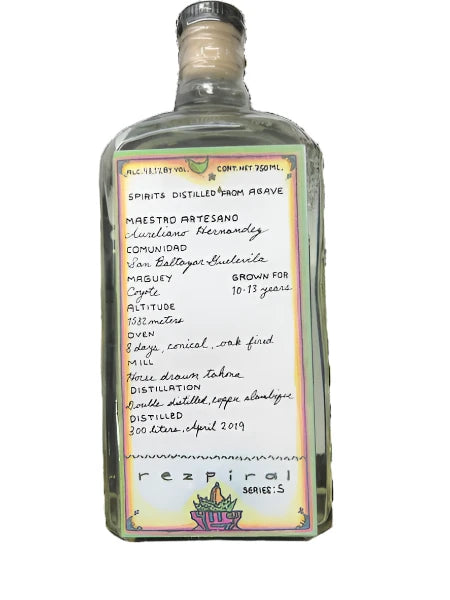 ALC. 48.1% BY VOL. CONT. NET 750 ML.
SPIRITS DISTILLED FROM AGAVE
MAESTRO ARTESANO
Aureliano Hernandez
COMUNIDAD
San Baltazar Guelavila
MAGUEY GROWN FOR
Coyote 10-13 years
ALTITUDE
1582 meters
OVEN
8 days, conical, oak fired
MILL
Horse drawn tahona
DISTILLATION
Double distilled, copper alambique
DISTILLED
300 liters, April 2019
rezpiral
SERIES: S